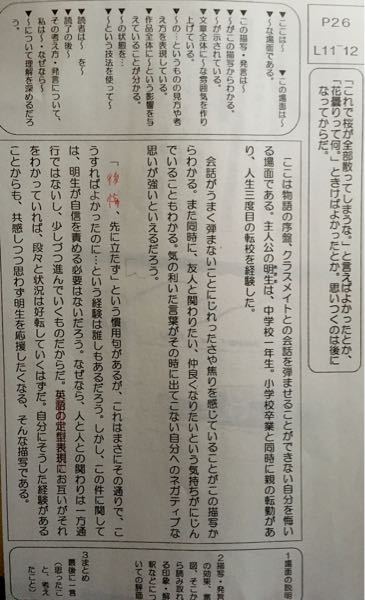 P26
L11~12
「これで桜が全部散ってしまうな。」と言えばよかったとか、
「花曇りって何。」ときけばよかったとか。思いつくのは後に
なってからだ。
▼ここは~　▼この場面は~
~な場面である。
▼この描写・発言は~
~がこの描写からわかる。
~が示されている。
▼文章全体に~な雰囲気を作り
上げている。
▼~の…というものの見方や考
え方を表現している。
▼作品全体に~という影響を与
えていることが分かる。
▼~の状態を…
▼~という技法を使って~
▼読者は~
▼読了の後~
▼その考え方・発言について、
私は~・なぜなら~
▼~について理解を深めるだろ
う。
ここは物語の序盤、クラスメイトとの会話を弾ませることができない自分を悔い
る場面である。主人公の明生は、中学校一年生。小学校卒業と同時に親の転勤があ
り、人生三度目の転校を経験した。
会話がうまく弾まないことにじれったさや焦りを感じていることがこの描写か
らわかる。また同時に、友人と関わりたい、仲良くなりたいという気持ちがにじん
でいることもわかる。気の利いた言葉がその時に出てこない自分へのネガティブな
思いが強いといえるだろう。
「後悔、先に立たず」という慣用句があるが、これはまさにその通りで、こ
うすればよかったのに…という経験は誰しもあるだろう。しかし、この件に関して
は、明生が自信を責める必要はないだろう。なぜなら、人と人との関わりは一方通
行ではないし、少しづつ進んでいくものだからだ。英語の定型表現にお互いがそれ
をわかっていれば、段々と状況は好転していくはずだ。自分にそうした経験がある
ことからも、共感しつつ思わず明生を応援したくなる、そんな描写である。
1場面の説明
2描写・発言
の効果、意
図、そこか
ら読み取れ
る印象・解
釈などにつ
いての評価
3まとめ
最後に一言
（思ったこ
と、考え
たこと）